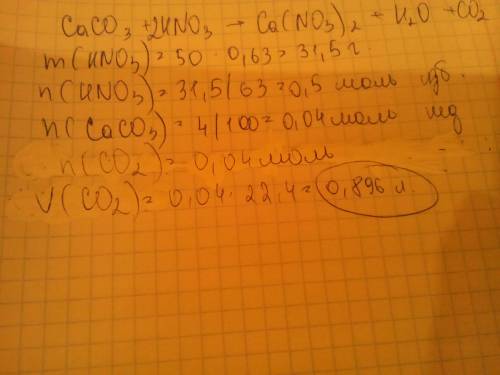 CaCO3 + 2HNO3 → Ca(NO3)2 + H2O + CO2
m(HNO3) = 50 · 0,63 = 31,5 г.
n(HNO3) = 31,5/63 = 0,5 моль изб.
n(CaCO3) = 4/100 = 0,04 моль
n(CO2) = 0,04 моль
V(CO2) = 0,04 · 22,4 = 0,896 л